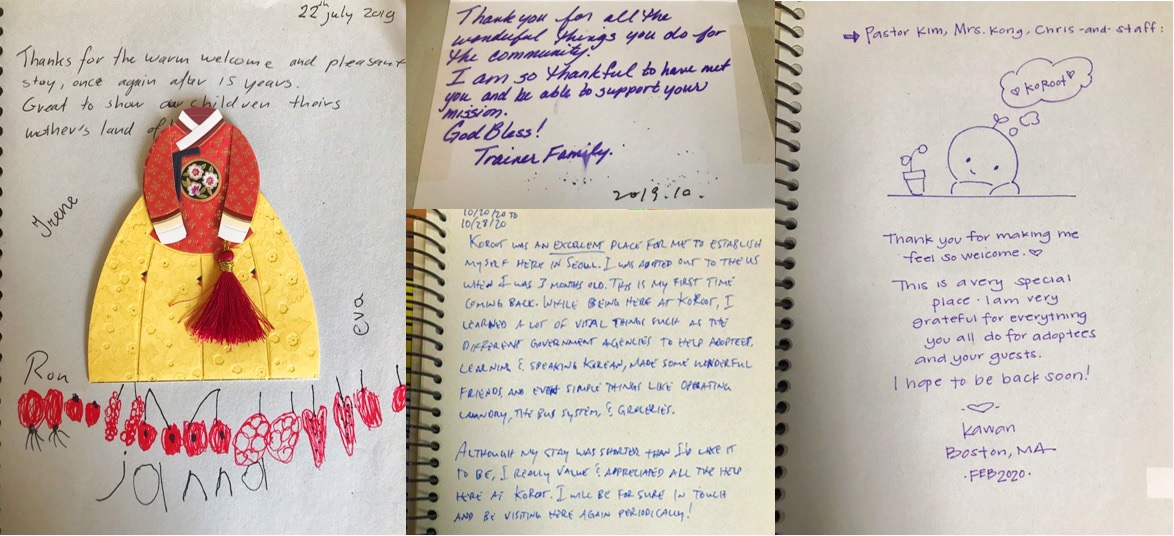 22th July 2019
Thanks for the warm welcome and pleasant
stay, once again after 15 years.
Great to show our children theirs
mother's land of
Irene
eva
Ron
janna
Thank you for all the
wonderful things you do for
the community.
I am so thankful to have met
you and be able to support your
mission.
God Bless!
Trainer Family.
2019.10.
10/20/20 TO
10/28/20
KOROOT WAS AN EXCELLENT PLACE FOR ME TO ESTABLISH
MYSELF HERE IN SEOUL. I WAS ADOPTED OUT TO THE US
WHEN I WAS 3 MONTHS OLD. THIS IS MY FIRST TIME
COMING BACK. WHILE BEING HERE AT KOROOT, I
LEARNED A LOT OF VITAL THINGS SUCH AS THE
DIFFERENT GOVERNMENT AGENCIES TO HELP ADOPTEES.
LEARNING & SPEAKING KOREAN, MADE SOME WONDERFUL
FRIENDS, AND EVEN SIMPLE THINGS LIKE OPERATING
LAUNDRY, THE BUS SYSTEM, & GROCERIES.
ALTHOUGH MY STAY WAS SHORTER THAN I'D LIKE IT
TO BE, I REALLY VALUE & APPRECIATED ALL THE HELP
HERE AT KOROOT. I WILL BE FOR SURE IN TOUCH
AND BE VISITING HERE AGAIN PERIODICALLY!
➡ Pastor Kim, Mrs. Kong, Chris and staff:
♡ KoRoot ♡
Thank you for making me
feel so welcome. ♡
This is a very special
place. I am very
grateful for everything
you all do for adoptees
and your guests.
I hope to be back soon!
-♡-
Kawan
Boston, MA
·FEB 2020·